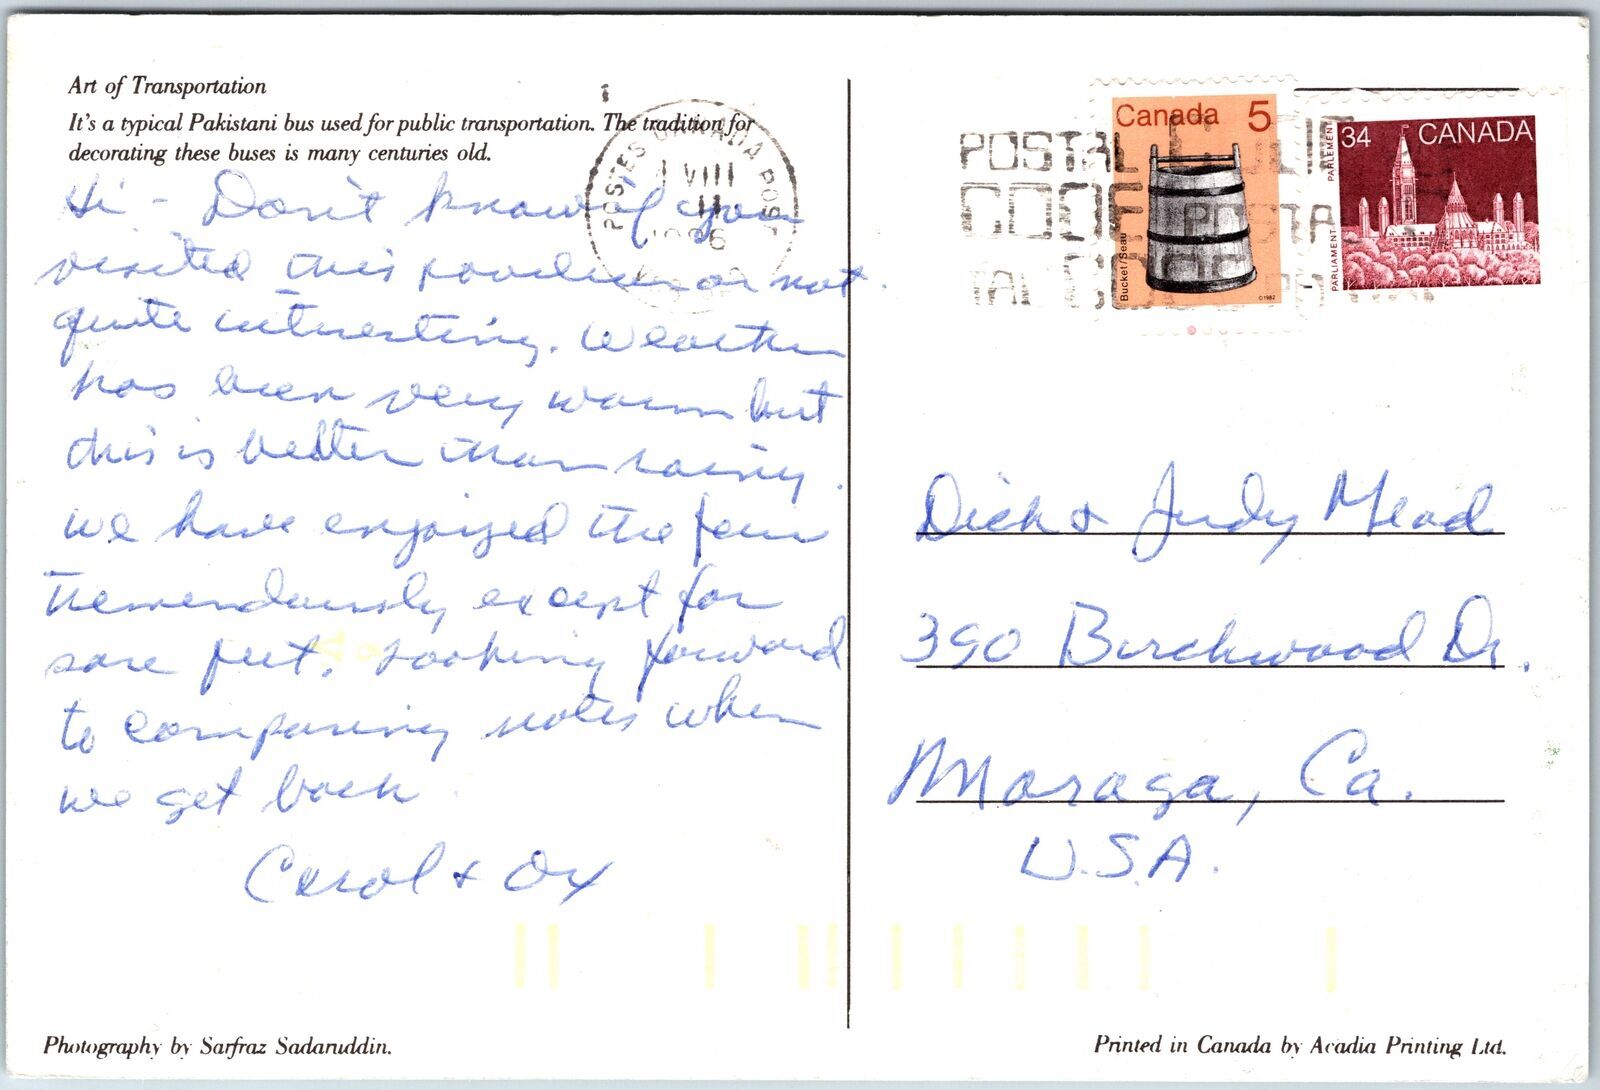 Art of Transportation
It's a typical Pakistani bus used for public transportation. The tradition for
decorating these buses is many centuries old.
Hi - Don't know if you
visited this pavilion or not.
quite interesting. Weather
has been very warm but
this is better than rainy.
we have enjoyed the fair
tremendously except for
sore feet. Looking forward
to comparing notes when
we get back.
Carol & Ox
Photography by Sarfraz Sadaruddin.
POSTES CANADA POST
VIII
11
1986
POSTAL
CODE
POSTAL
Canada 5
Bucket/Seau
©1982
34 CANADA
PARLIAMENT PARLEMENT
Dick & Judy Mead
390 Birchwood Dr.
Moraga, Ca.
U.S.A.
Printed in Canada by Acadia Printing Ltd.